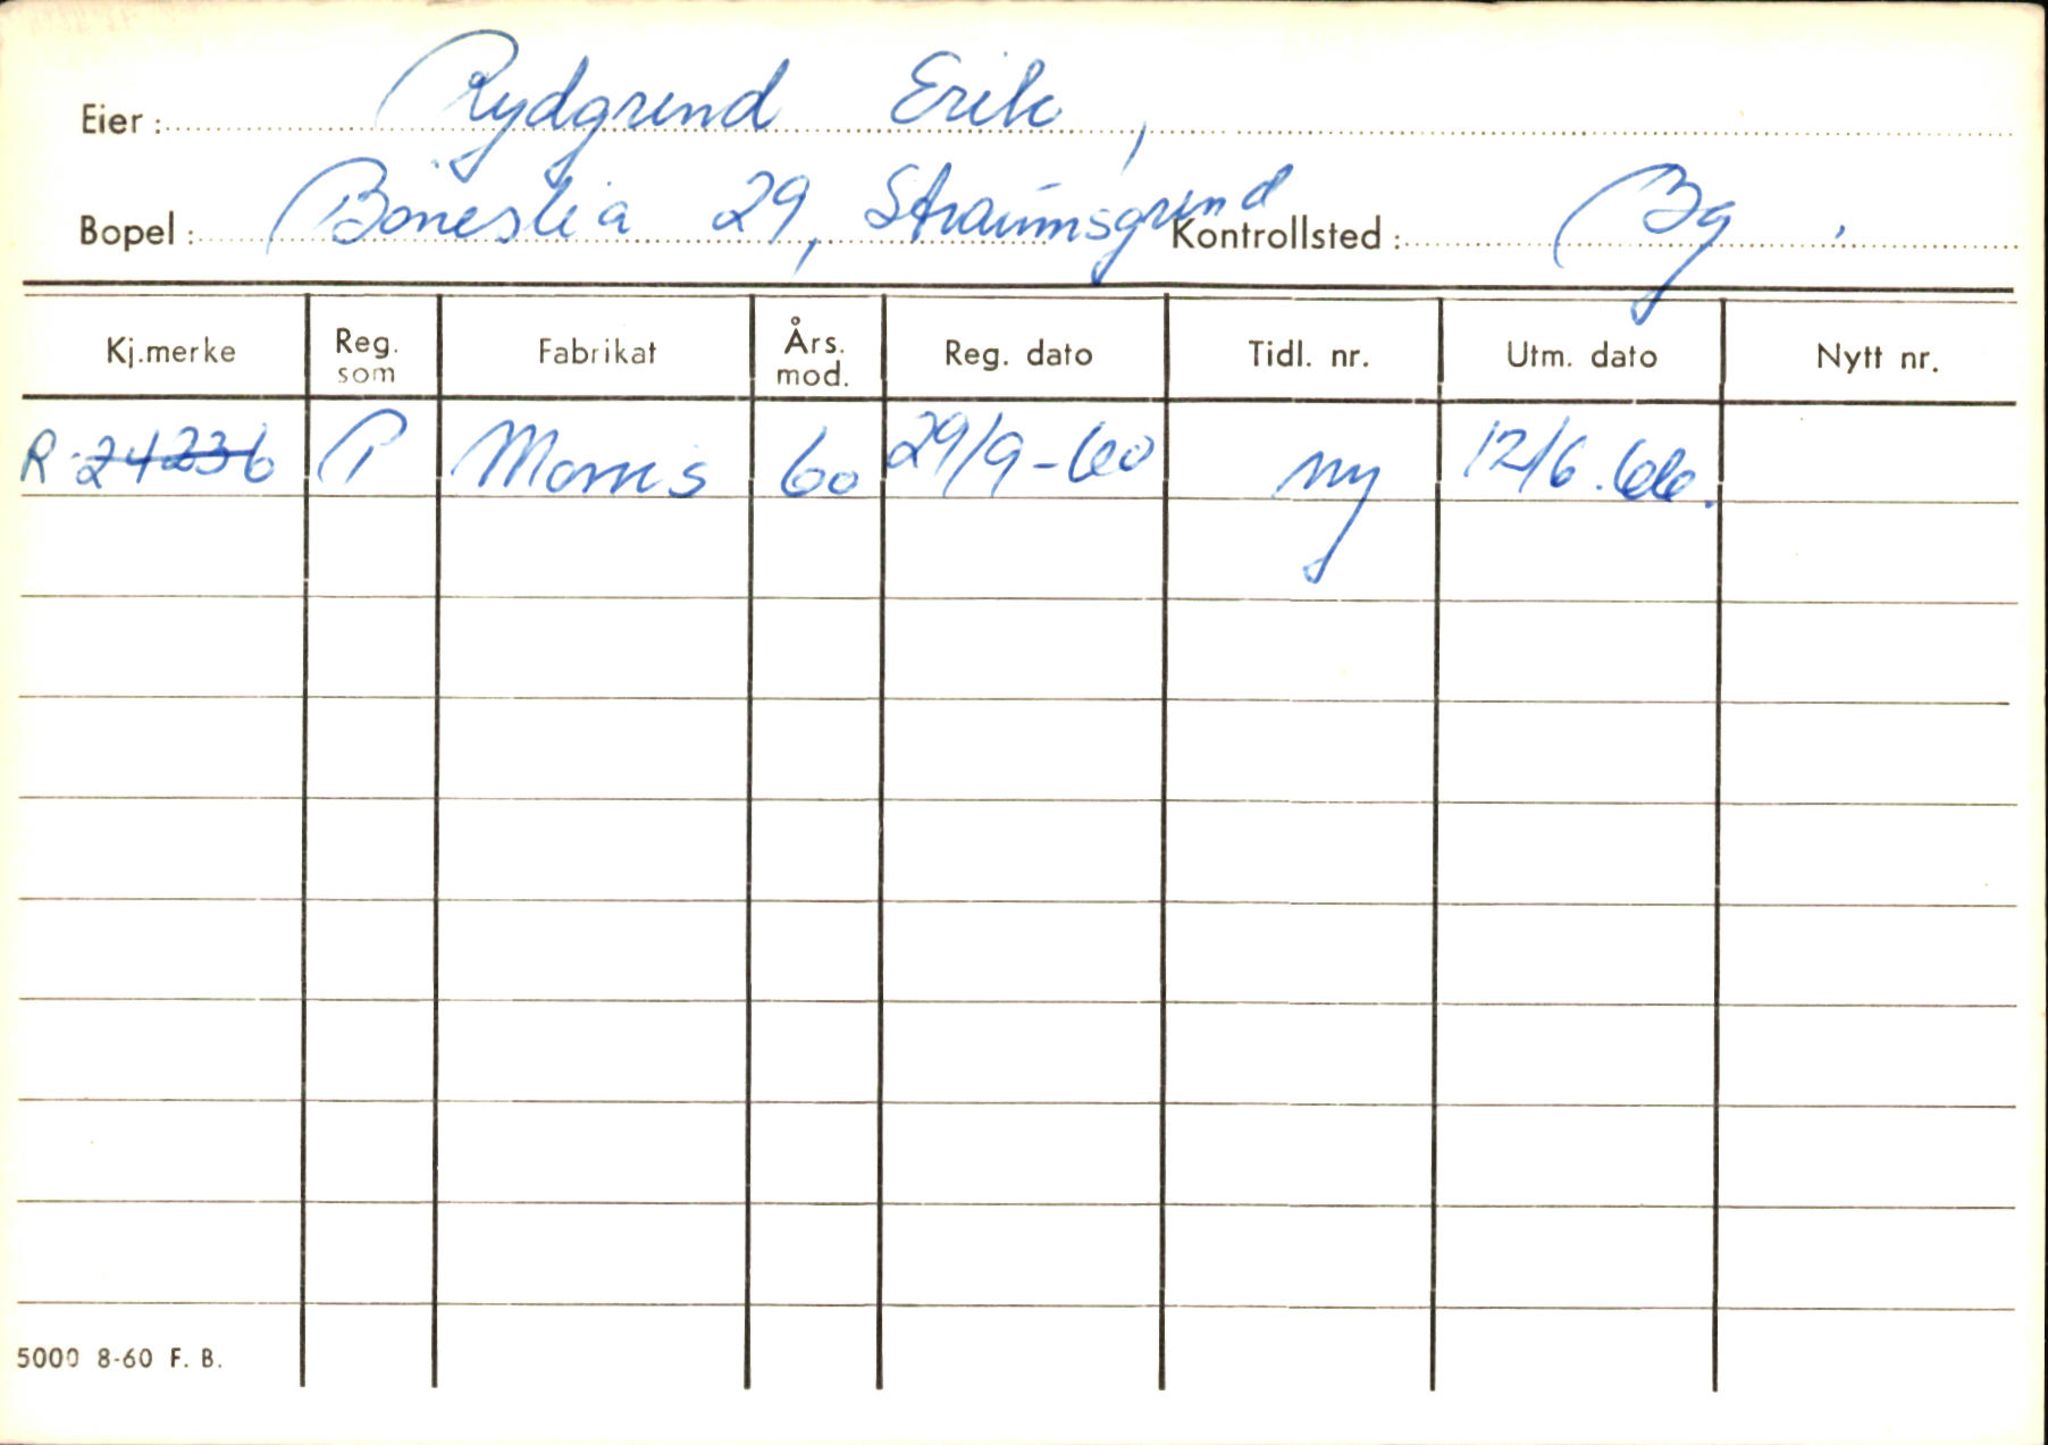 Eier: Rydgrend Erik,
Bopel: Bøneslia 29, Straumsgrend Kontrollsted: Bg.
Kj.merke Reg. som Fabrikat Års. mod. Reg. dato Tidl. nr. Utm. dato Nytt nr.
R-24236 P Morris 60 29/9-60 ny 12/6.66.
5000 8-60 F. B.